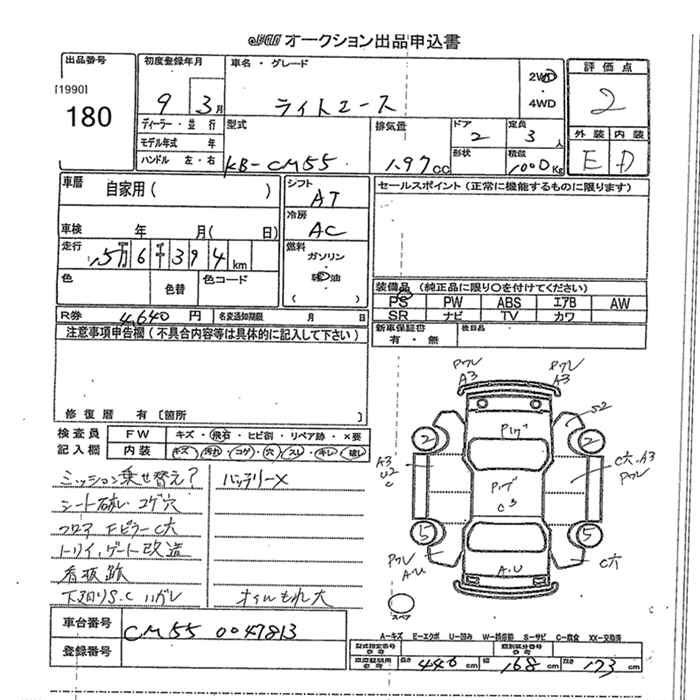 オークション出品申込書
出品番号
[1990]
180
初度登録年月 9 3月
車名・グレード ライトエース
2WD・4WD
評価点 2
外装 内装
E D
ディーラー・並行
モデル年式 年
ハンドル 左・右
型式 KB-CM55
排気量 1.97cc
ドア 2
形状
定員 3人
積載 1000Kg
車暦 自家用( )
車検 年 月( 日)
走行 15万6千394km
色 色替 色コード
シフト AT
冷房 AC
燃料
ガソリン
軽油
( )
セールスポイント(正常に機能するものに限ります)
装備品(純正品に限り〇を付けてください)
PS PW ABS エアB AW
SR ナビ TV カワ
R券 4,640円 名変通知期限 月 日
新車保証書 有・無
後日品
注意事項申告欄(不具合内容等は具体的に記入して下さい)
修復暦 有〔箇所 〕
検査員記入欄
FW キズ・飛石・ヒビ割・リペア跡・×要
内装 キズ・汚れ・コゲ・穴・スレ・キレ・破レ
ミッション乗せ替え? バッテリーX
シート破レ コゲ穴
フロア Fピラー C大
トリイ,ゲート改造
看板跡
下廻りS.C ハガレ オイルもれ大
Pワレ A3
Pワレ A3
S2
2
2
A3 U2 C
C穴 A3 Pワレ
C3
5
5
Pワレ A・U
A.U
C穴
スペア
車台番号 CM55 0047813
登録番号
A-キズ E-エクボ U-凹み W-補修跡 S-サビ C-腐食 XX-交換済
型式指定番号 類別区分番号
長さ 440cm 幅 168cm 高さ 173cm